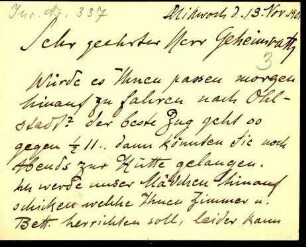 Inv. Nr. 337
Mittwoch d. 13. Nov.
Sehr geehrter Herr Geheimrath
3
Würde es Ihnen passen morgen
hinauf zu fahren nach Ohl-
stadt? der beste Zug geht so
gegen ½ 11.. dann könnten Sie noch
Abends zur Hütte gelangen.
Ich werde unser Mädchen hinauf
schicken welche Ihnen Zimmer u.
Bett herrichten soll, leider kann